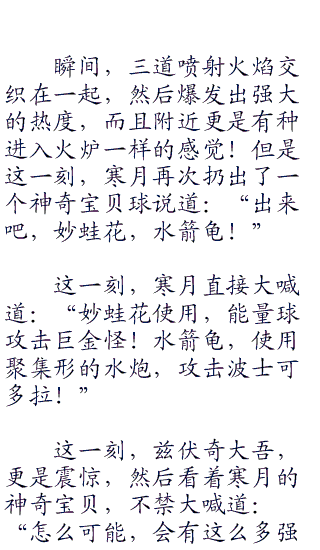 瞬间，三道喷射火焰交
织在一起，然后爆发出强大
的热度，而且附近更是有种
进入火炉一样的感觉！但是
这一刻，寒月再次扔出了一
个神奇宝贝球说道：“出来
吧，妙蛙花，水箭龟！”
这一刻，寒月直接大喊
道：“妙蛙花使用，能量球
攻击巨金怪！水箭龟，使用
聚集形的水炮，攻击波士可
多拉！”
这一刻，兹伏奇大吾，
更是震惊，然后看着寒月的
神奇宝贝，不禁大喊道：
“怎么可能，会有这么多强